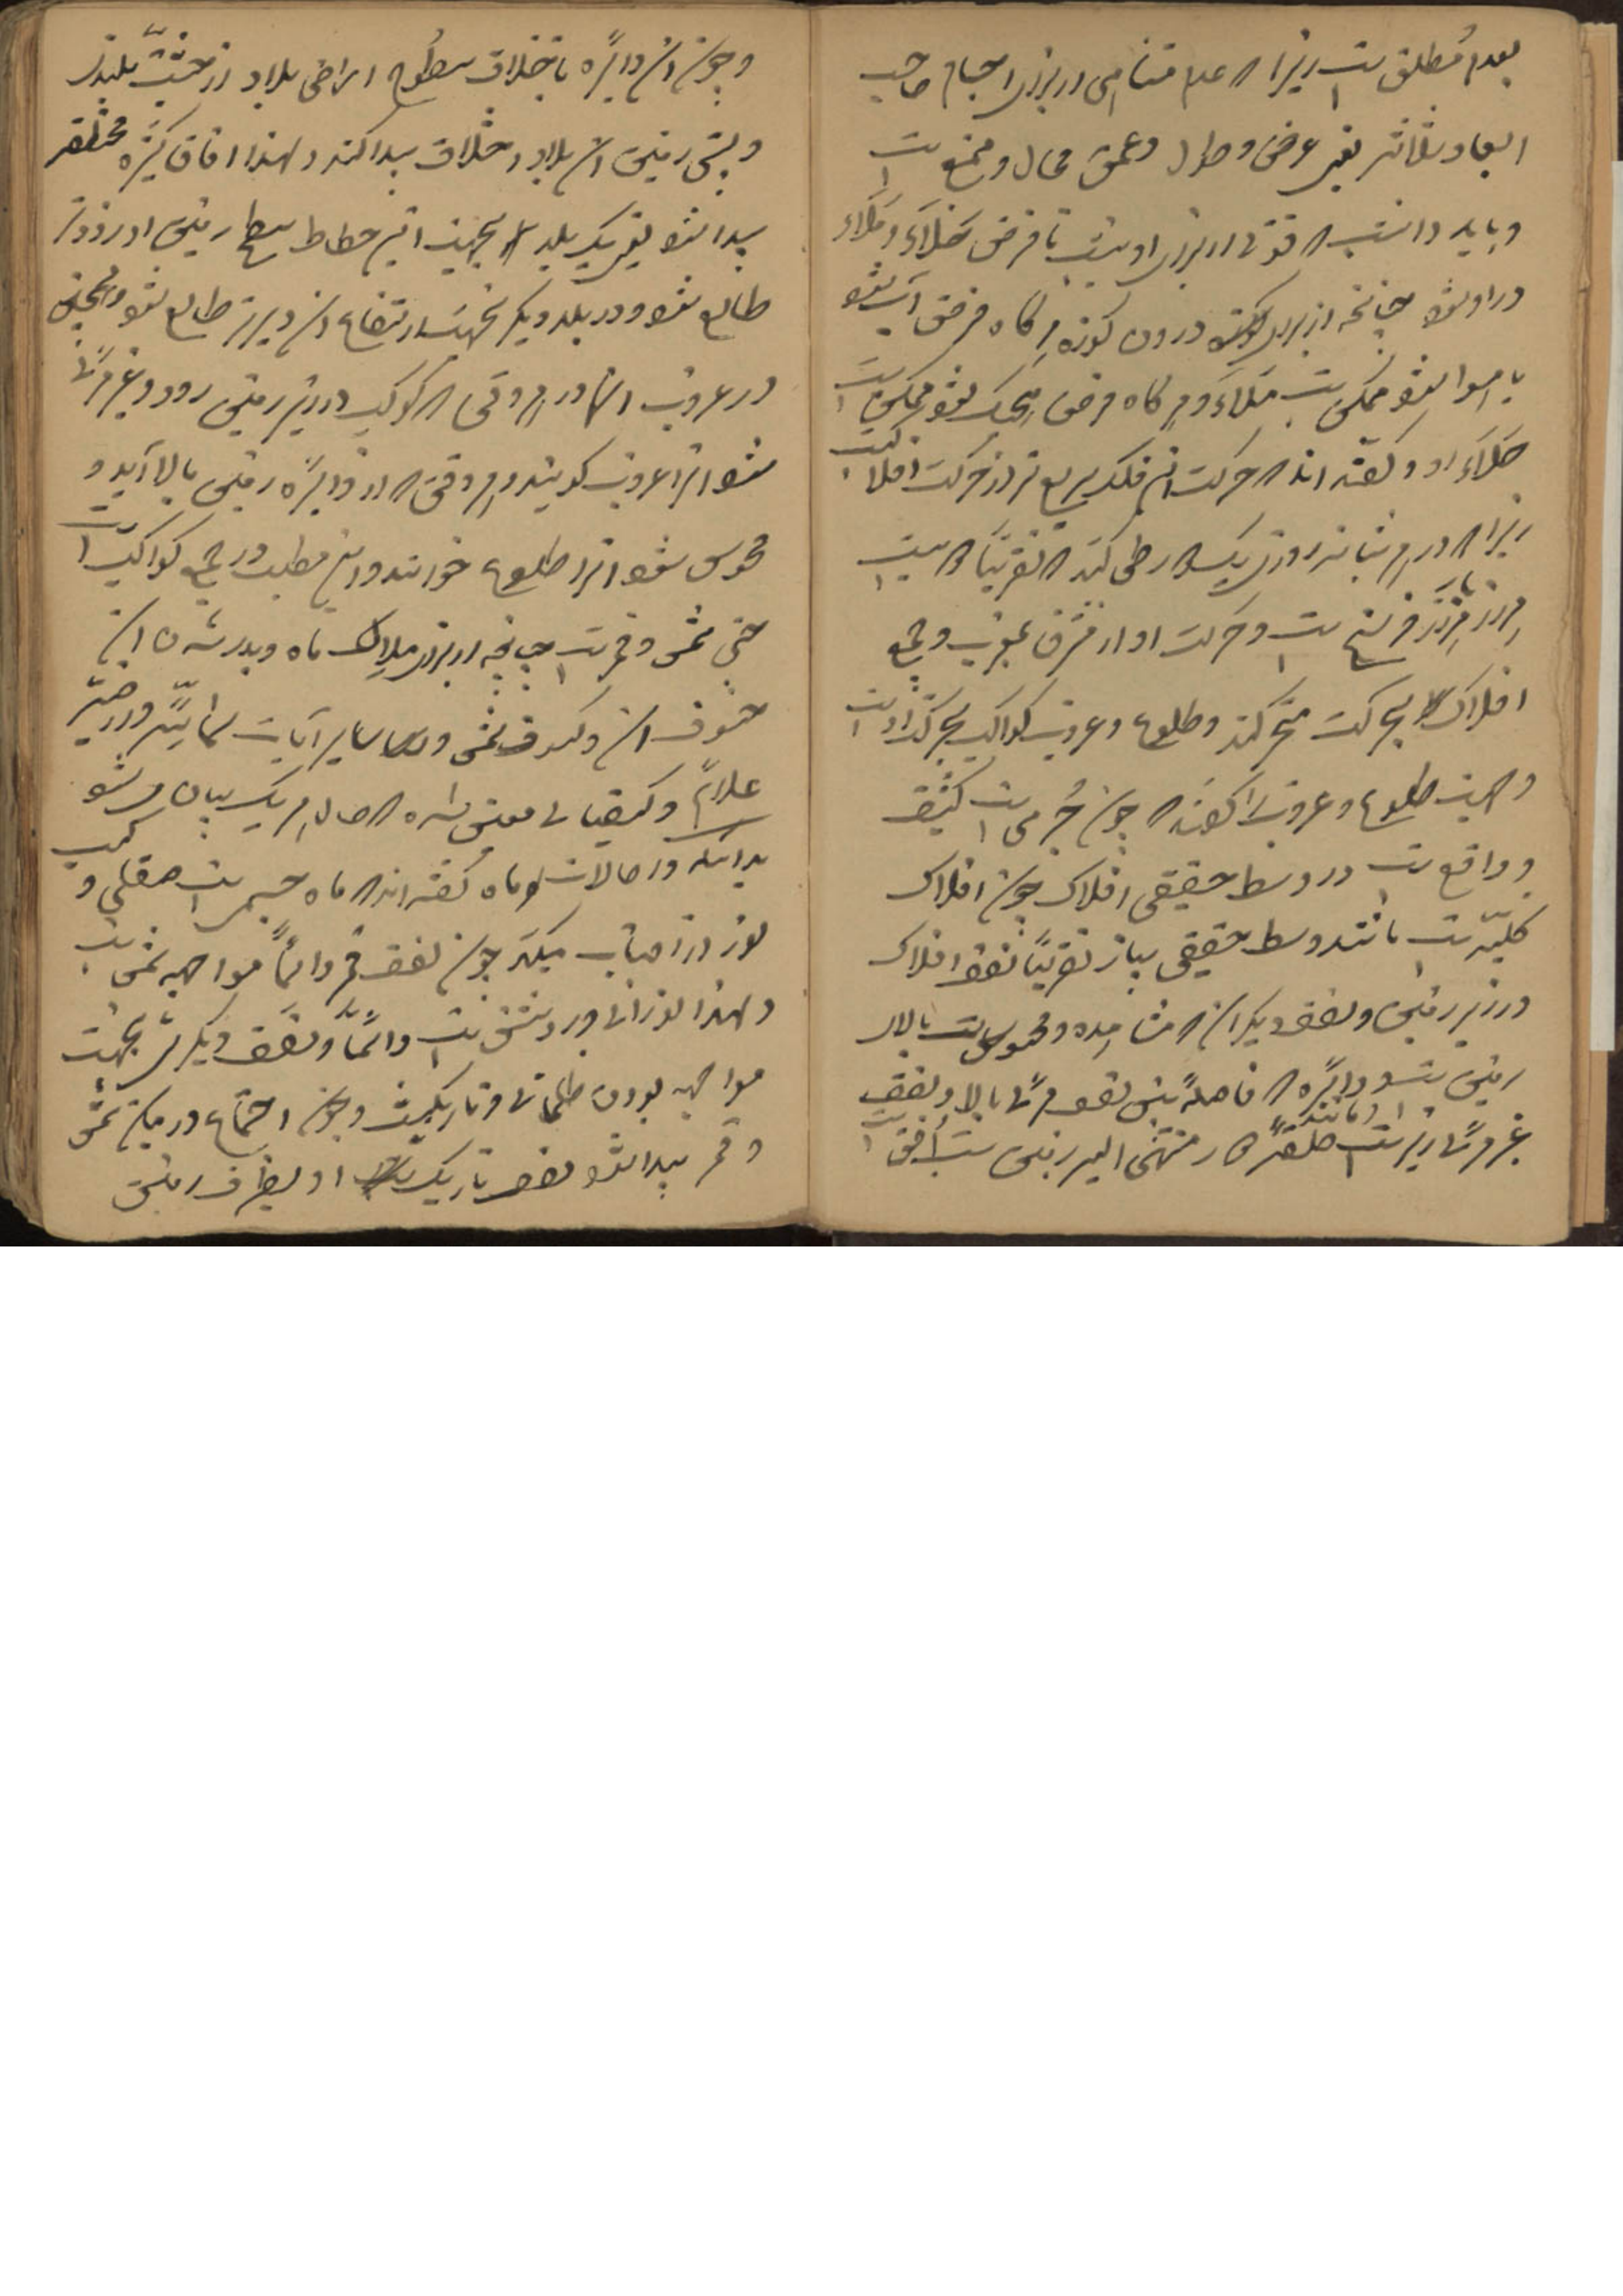 بعدم مطلق است زیرا که عدم متناهی از برای اجسام صاحب
ابعاد ثلاثه یعنی عرض و طول و عمق محال و ممتنع است
و باید دانست که فوقی از برای او نیست تا فرض خلاء و ملاء
در او شود چنانچه از برای کوزه درون کوزه هرگاه فرض آب شود
یا هوا شود ممکن است ملاء و هرگاه فرض هیچیک نشود ممکن است
خلاء او و گفته اند که حرکت این فلک سریع تر از حرکت افلاک است
زیرا که در هر شبانه روزی یک دور طی کند که تقریبا که بیست
هزار هزار فرسخ است و حرکت او از مشرق بمغرب و جمیع
افلاک بحرکت متحرکند و طلوع و غروب کواکب بحرکت اوست
و جهت طلوع و غروب را گفته اند که چون جرمی است کثیف
و واقع است در وسط حقیقی افلاک چون افلاک
کلیه است مانند وسط حقیقی پیاز تقریبا نصف افلاک
در زیر زمین و نصف دیگر آن که مشاهده و محسوس است بالای
زمین است و دایره که فاصله بین نصف مرئی بالا و نصف
غیر مرئی زیر است مانند حلقه که منتهی الیه زمین است افق است
و چون این دایره باختلاف سطوح اراضی بلاد از حیثیت بلندی
و پستی زمین آن بلاد اختلاف پیدا کند و لهذا آفاق کثیره مختلفه
پیدا شود یعنی یک بلد بجهت انحطاط سطح زمین او زودتر
طالع شود و در بلد دیگر بجهت ارتفاع آن دیرتر طالع شود و همچنین
در غروب آنها در هر وقتی که کوکب در زیر زمین رود و غیر مرئی
شود آنرا غروب گویند و هر وقت که از دایره زمین بالا آید و
محسوس شود آنرا طلوع خوانند و این مطلب در جمیع کواکب است
حتی شمس و قمر است چنانچه از برای هلال ماه و بدر شدن آن
خسوف آن و کسوف شمس و سایر آیات سمائیه و ارضیه
علائم و کیفیاتی معین شده که حال هر یک بیان میشود
بدانکه در حالات ماه گفته اند که ماه جسمی است صقلی و کسب
نور از آفتاب میکند چون نصف قمر دائما مواجهه شمس است
و لهذا نورانی و روشن است دائما و نصف دیگرش بجهت
مواجهه بودن ظلمانی و تاریک است و چون اجتماع در میان شمس
و قمر پیدا شود نصف تاریک او بطرف زمین